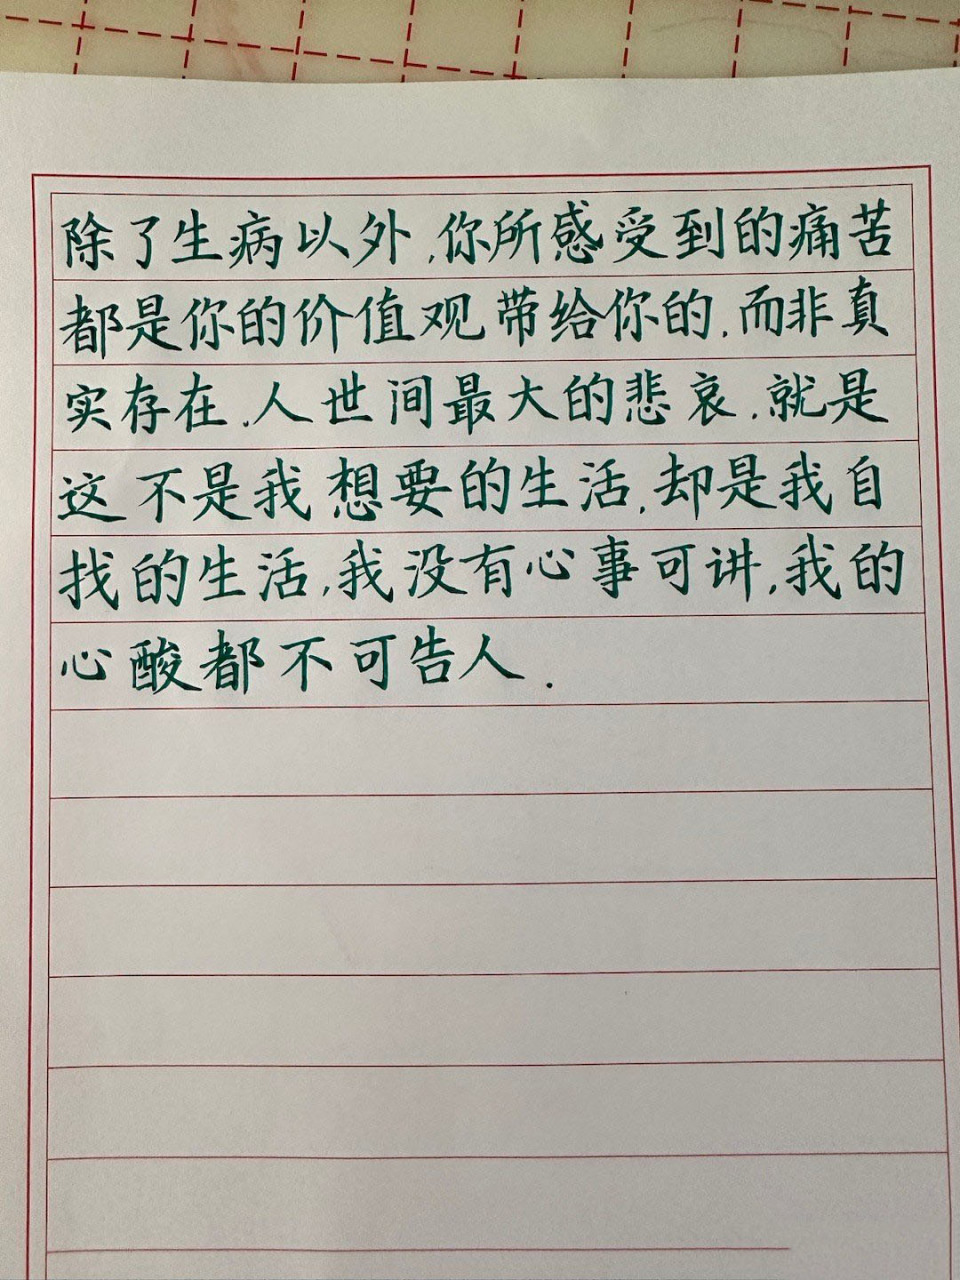 除了生病以外,你所感受到的痛苦
都是你的价值观带给你的,而非真
实存在,人世间最大的悲哀,就是
这不是我想要的生活,却是我自
找的生活,我没有心事可讲,我的
心酸都不可告人.